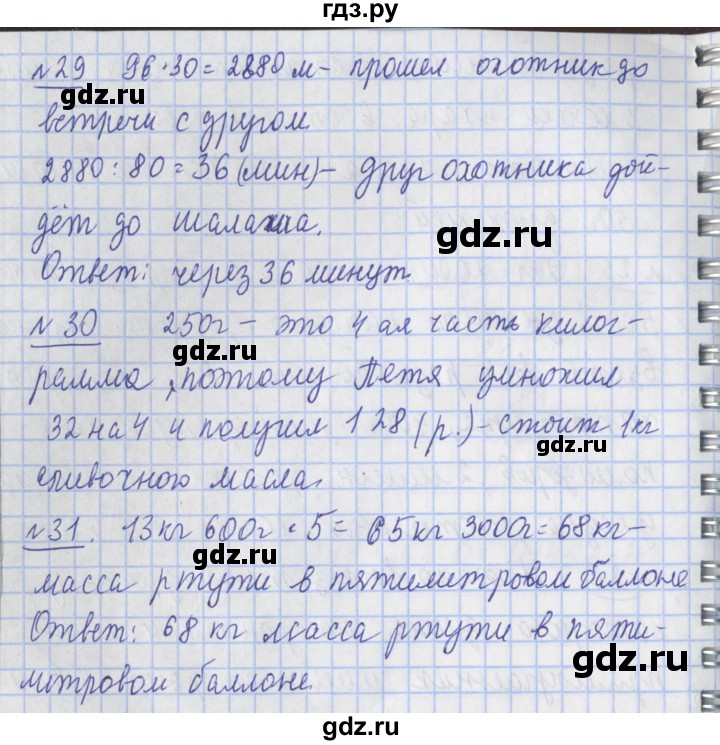 гдз.ру
№29 96·30=2880 м- прошел охотник до
gdz.ru
встречи с другом
2880:80=36(мин)- друг охотника дой-
дёт до шалаша.
gdz.ru
Ответ: через 36 минут.
№ 30 250г - это 4 ая часть килог-
gdz.ru
рамма, поэтому Петя умножил
32 на 4 и получил 128 (р.)-стоит 1кг
gdz.ru
сливочного масла.
gdz.ru
№31. 13кг 600г·5= 65кг 3000г=68кг-
масса ртути в пятилитровом баллоне
Ответ: 68 кг масса ртути в пяти-
gdz.ru
литровом баллоне.
gdz.ru
gdz.ru